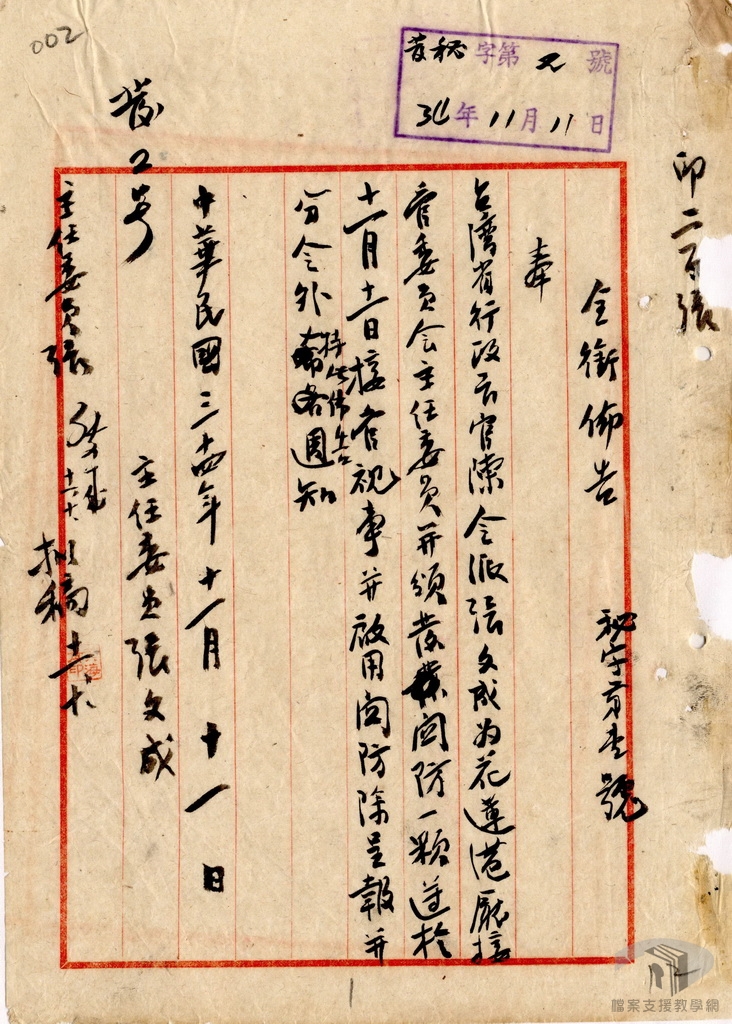 002
花秘字第2號
34年11月11日
印二百張
全銜佈告
秘字第壹號
奉
台灣省行政長官陳令派張文成為花蓮港廳接
管委員会主任委員并頒發関防一顆遵於
十一月十一日接管視事并啟用関防除呈報并
分令外
特此佈告
週知
中華民國三十四年十一月十一日
主任委員張文成
發2号
主任委員張
十一、十
擬稿十一、十
1
檔案支援教學網